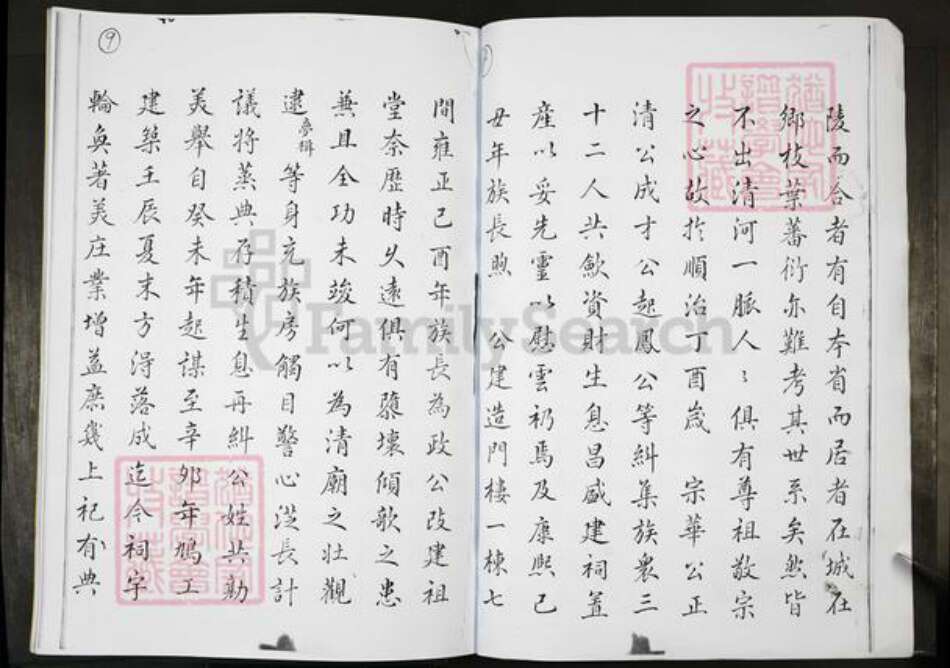 陵而合者有自本省而居者在城在
鄉枝葉蕃衍亦難考其世系矣然皆
不出清河一脈人〻俱有尊祖敬宗
之心故扵順治丁酉歲 宗華公正
清公成才公起鳳公等糾集族衆三
十二人共歛資財生息昌盛建祠置
產以妥先靈以慰雲礽焉及康熙己
丑年族長煦 公建造門樓一棟七
間雍正己酉年族長為政公改建祖
堂奈歷時久遠俱有隳壞傾欹之患
兼且全功未竣何以為清廟之壯觀
逮夢輯等身充族房觸目警心從長計
議將蒸典存積生息再糾公姓共勷
美舉自癸未年起謀至辛卯年鳩工
建築壬辰夏末方淂落成迄今祠宇
輪奐著美庄業增益庶幾上祀有典
9
FamilySearch